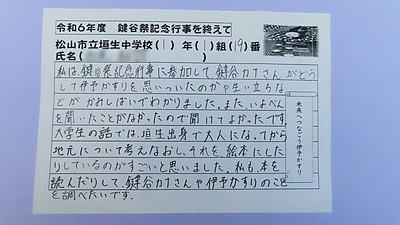 令和6年度 鍵谷祭記念行事を終えて
松山市立垣生中学校(1)年(1)組(19)番
氏名(
私は、鍵谷祭記念行事に参加して、鍵谷カナさんがどう
して伊予かすりを思いついたのかや生い立ちな
どが かみしばいでわかりました。また、いよべん
を聞いたことがなかったので聞けてよかったです。
大学生の話では、垣生出身で大人になってから
地元について考えなおし、それを、絵本にした
りしているのがすごいと思いました。私も本を
読んだりして、鍵谷カナさんや伊予かすりのこと
を調べたいです。
未来へつなごう伊予かすり